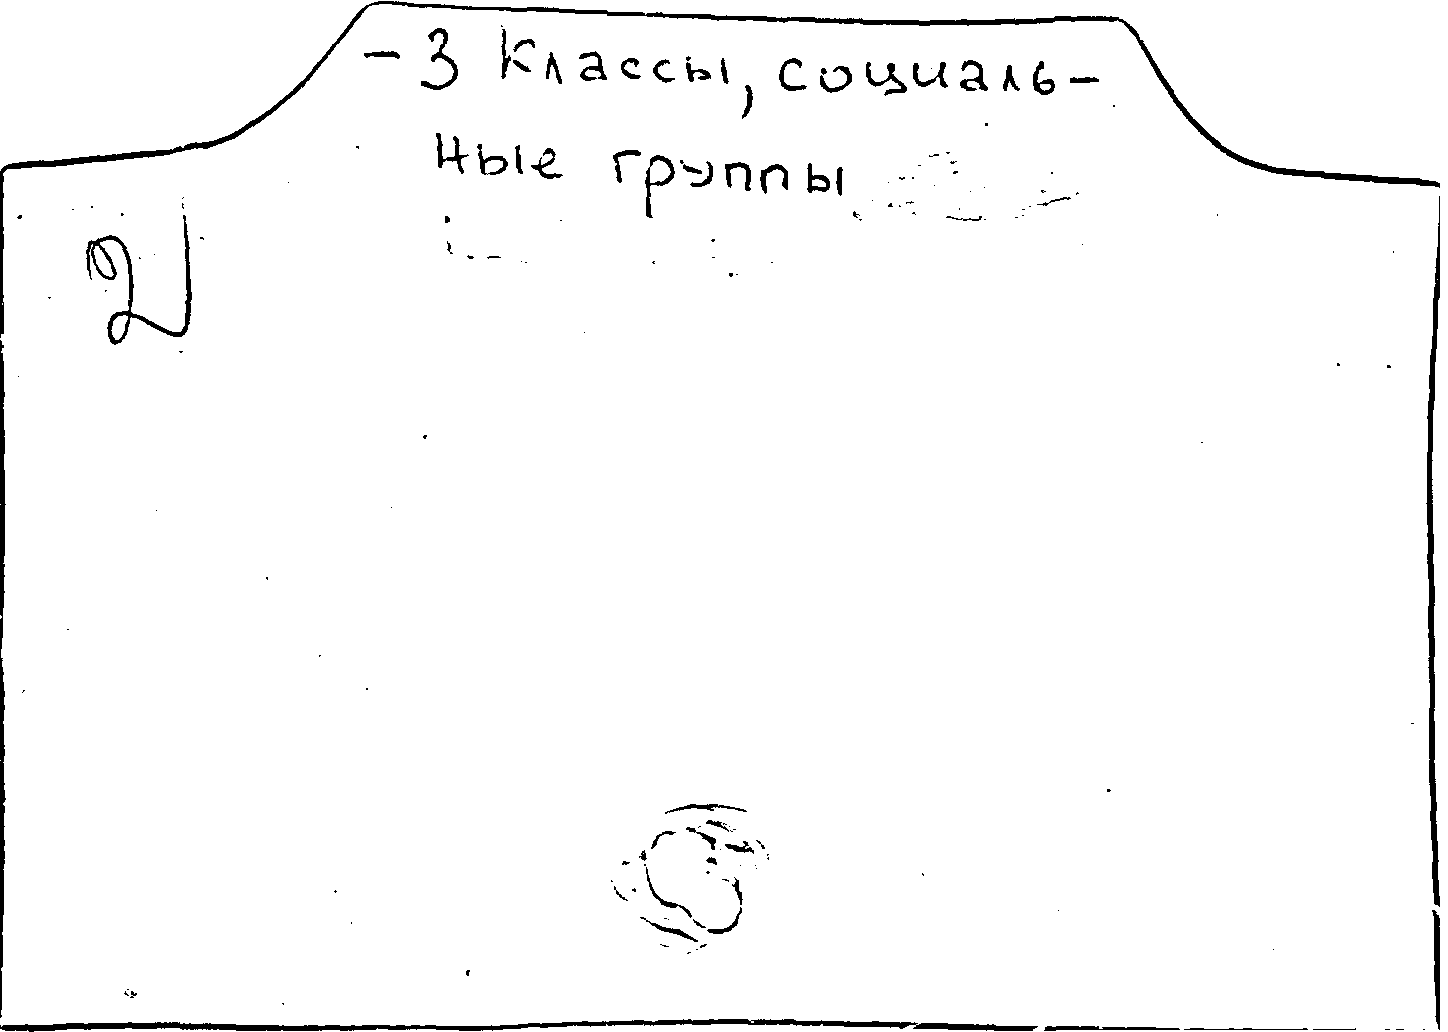 - 3 Классы, социаль-
ные группы